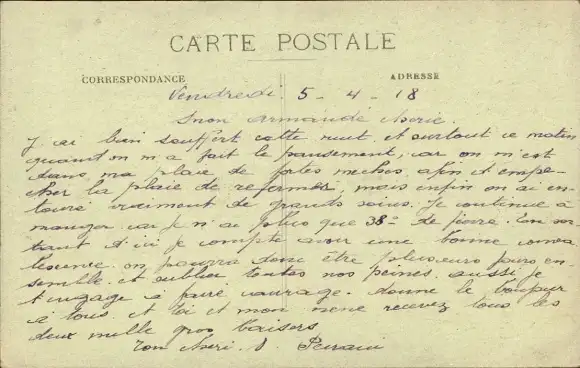 CARTE POSTALE
CORRESPONDANCE ADRESSE
Vendredi 5 - 4 - 18
mon armande cherie.
J ai bien souffert cette nuit et surtout ce matin
quand on m a fait le pansement, car on m'est
dans ma plaie de fortes meches afin d empe-
cher la plaie de refermer, mais enfin on ai en-
touré vraiment de grands soins. Je continue à
manger car je n ai plus que 38° de fievre. En sor-
tant d ici je compte avoir une bonne conva
lescence. on pourra donc être plusieurs jours en-
semble et oublier toutes nos peines. aussi je
t'engage à faire courage. donne le bonjour
à tous et toi et mon nene recevez tous les
deux mille gros baisers
Ton cheri